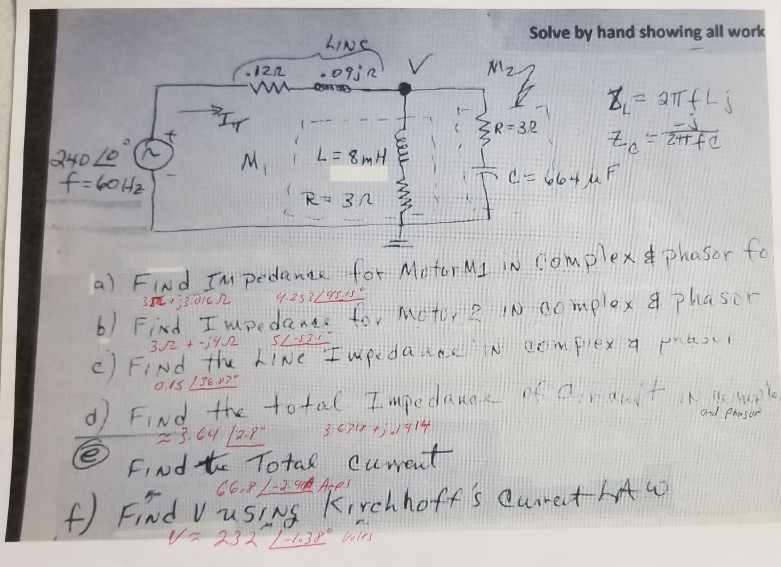 Solve by hand showing all work
LINE
.12Ω .09jΩ V M2
Z_L = 2πfLj
I_T
R=3Ω
Z_C = -j/2πfC
240∠0°
f=60Hz
M1 L=8mH
C=664μF
R=3Ω
a) Find Impedance for Motor M1 in complex & phasor fo
3Ω+j3.016Ω 4.253∠45.15°
b) Find Impedance for Motor 2 in complex & phasor
3Ω+-j4Ω 5∠-53.1
c) Find the Line Impedance in complex &
0.15∠36.87°
d) Find the total Impedance of Circuit in
and phasor
≈3.64∠2.9°
e Find the Total current
66.8∠-2.9 Amps
f) Find V using Kirchhoff's Current LAW
V≈232∠-1.38° Volts